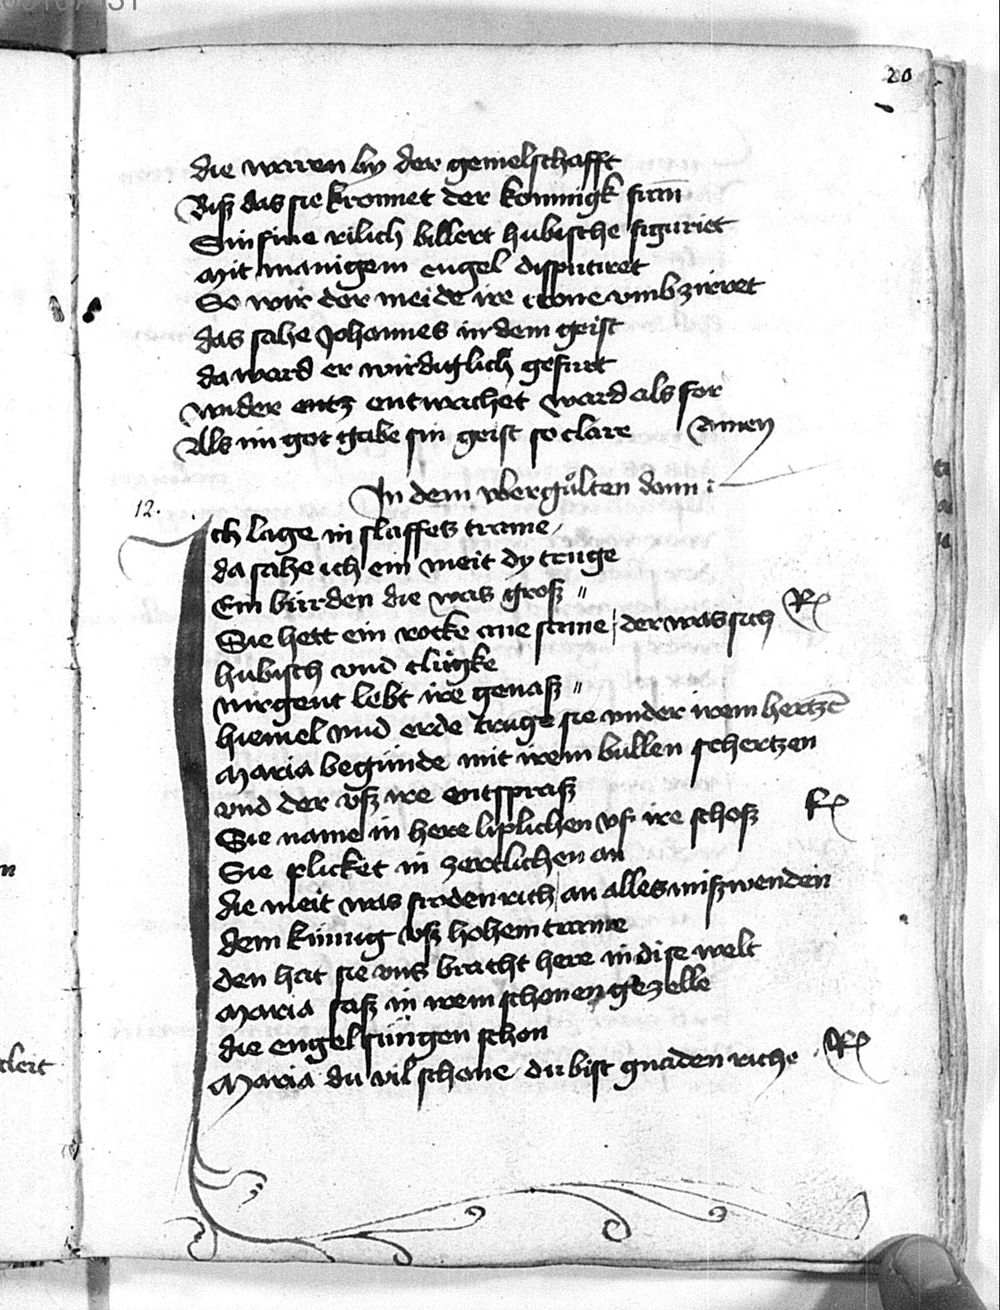 20
die waren by der gemelschafft
Biß das sie kronnet der konnigk
Sin fine rilich billert hubische figuriet
Mit manigem engel disputiret
So wir der meide ire crone vmbzirret
das sahe Johannes in dem geist
da ward er wirdiglich gefurt
wider entz entwachet ward als for
Als im got gabe sin geist so clare Amen
In dem vbergulten donn :
12.
Ich lage in slaffes trame
da sahe ich ein meit dy truge
Ein bürden die was groß "
Sie hett ein rocke ane sunne / der was sich Rp
hubisch vnd clügke
nirgent lebt ire genaß "
hiemel vnd erde truge sie vnder irem hertzen
Maria begünde mit irem bullen schertzen
vnd der vß ire entspraß
Sie name in here liplichen vf ire schoß Rp
Sie plicket in zertlichen an
die meit was frodenrich an alles mißwenden
dem künnig vß hohem trame
den hat sie vns bracht here in dise welt
Maria saß in irem schonen gezelle
die engel süngen schon
Maria du vil schone du bist gnaden riche Rp
n
cleit